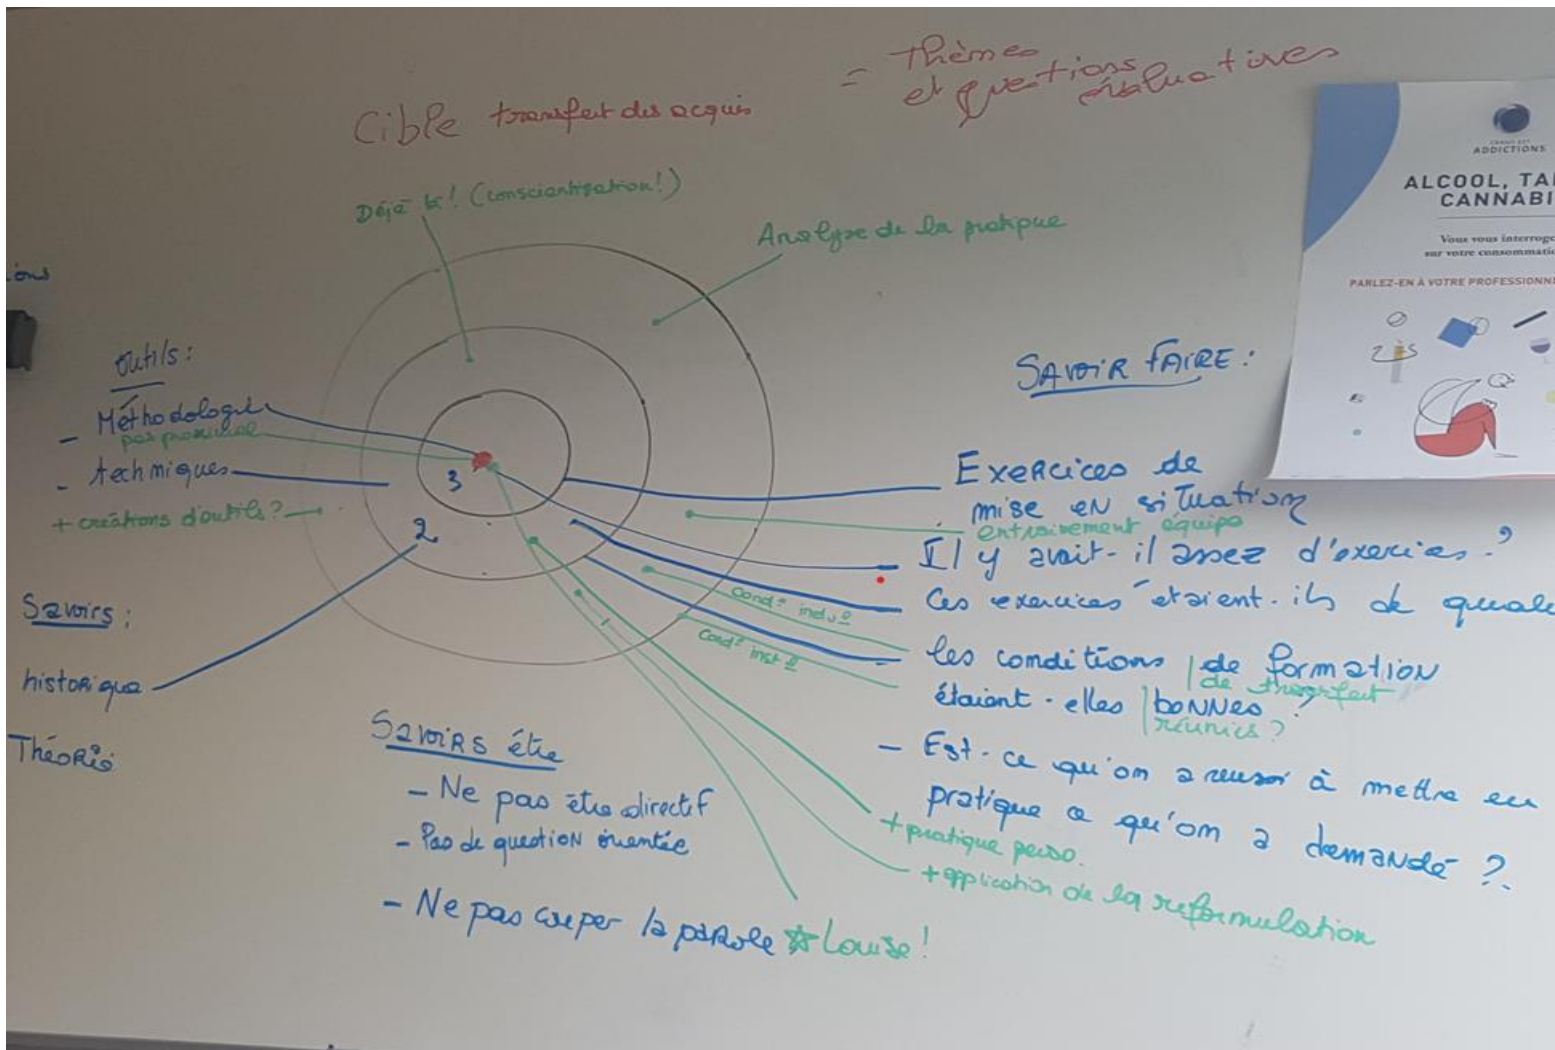 Cible transfert des acquis
= thèmes
et questions
évaluatives
Déjà là! (conscientisation!)
Analyse de la pratique
ions
outils:
- Méthodologie
pas proximal
- techniques
+ créations d'outils?
3
2
Savoirs:
historique
Théorie
Savoirs être
- Ne pas être directif
- Pas de question orientée
- Ne pas couper la parole ☆ Louise!
SAVOIR FAIRE:
Exercices de
mise en situation
entrainement équipe
Il y avait-il assez d'exercices?
Ces exercices étaient-ils de quali
Cond° indv
Cond° inst
les conditions | de formation
de transfert
étaient-elles | bonnes?
réunies?
- Est-ce qu'on a reussi à mettre en
pratique ce qu'on a demandé?
+ pratique perso.
+ application de la reformulation
ADDICTIONS
ALCOOL, TA
CANNABI
Vous vous interroge
sur votre consommatio
PARLEZ-EN À VOTRE PROFESSIONN